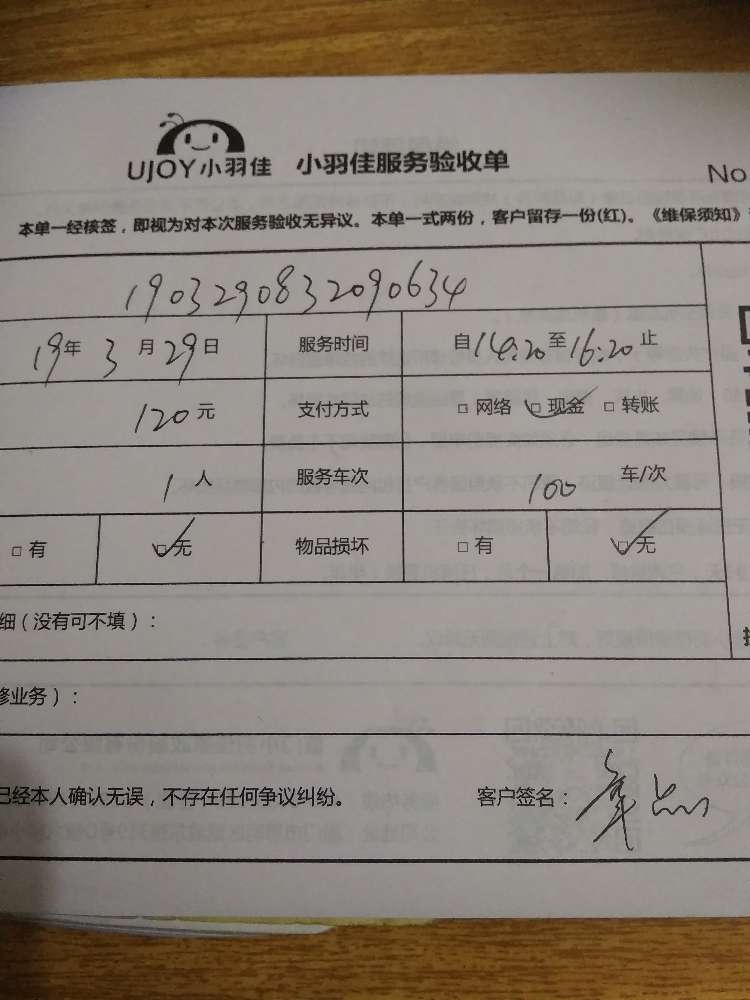 UJOY小羽佳 小羽佳服务验收单
No
本单一经核签，即视为对本次服务验收无异议。本单一式两份，客户留存一份(红)。《维保须知》
1903290832090634
19年 3 月 29 日 服务时间 自14:20至16:20止
120元 支付方式 □ 网络 □ 现金 □ 转账
1 人 服务车次 100 车/次
□ 有 □ 无 物品损坏 □ 有 □ 无
细（没有可不填）：
修业务）：
已经本人确认无误，不存在任何争议纠纷。 客户签名：